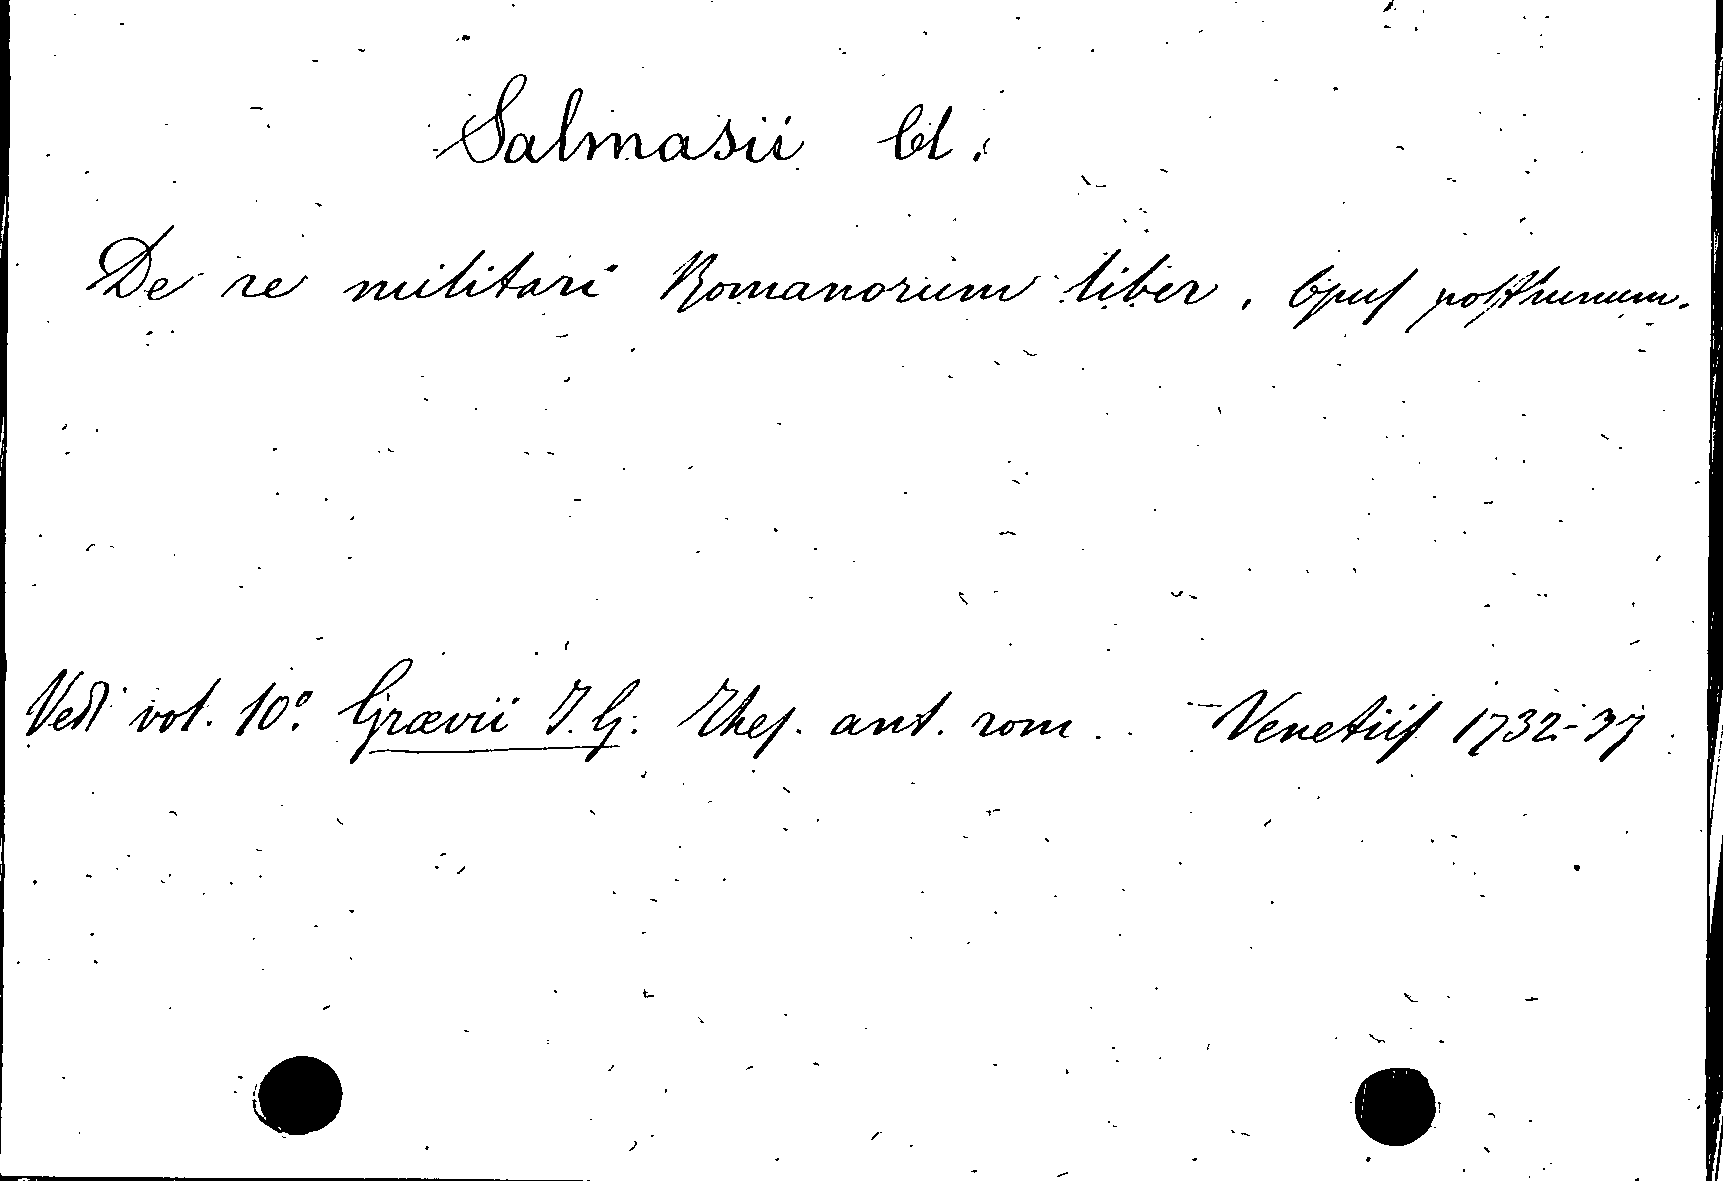 Salmasii Cl.
De re militari Romanorum liber. Opus posthumum.
Vedi vol. 10º. Grævii J. G. Thes. ant. rom. Venetiis 1732-37